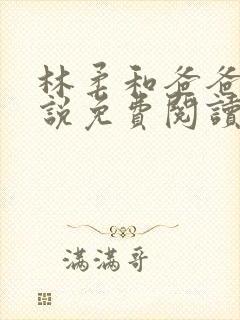 林柔和爸爸
說免費閱讀
滿滿哥